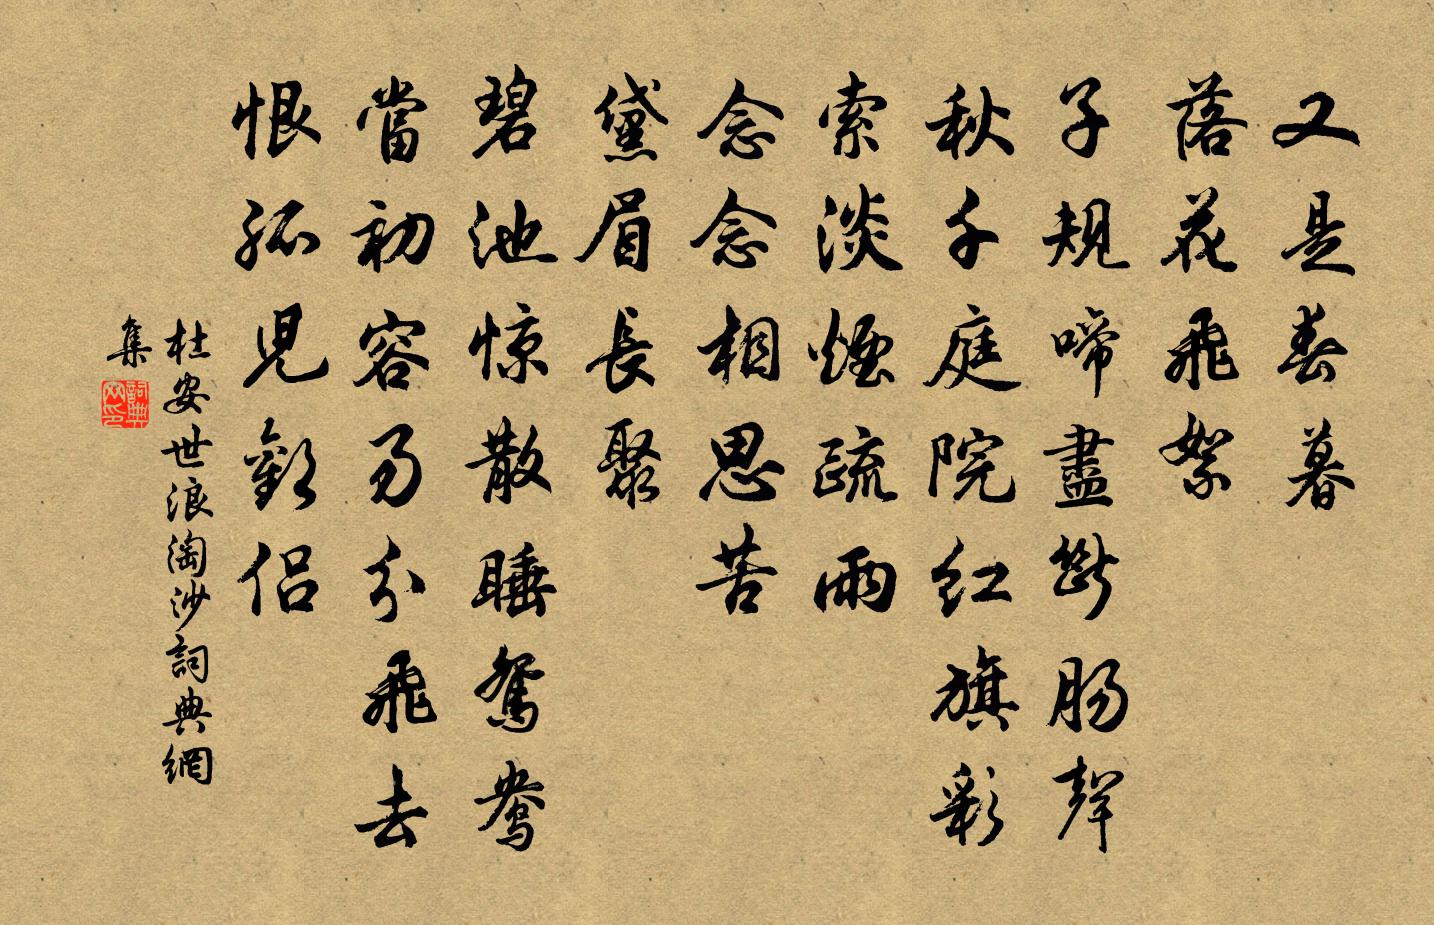 又是春暮
落花飛絮
子規啼盡斷腸聲
秋千庭院紅旗彩
索淡煙疏雨
念念相思苦
黛眉長聚
碧池惊散睡鴛鴦
當初容易分飛去
恨孤兒歡侶
杜安世浪淘沙詞典網
集
詞典
网印